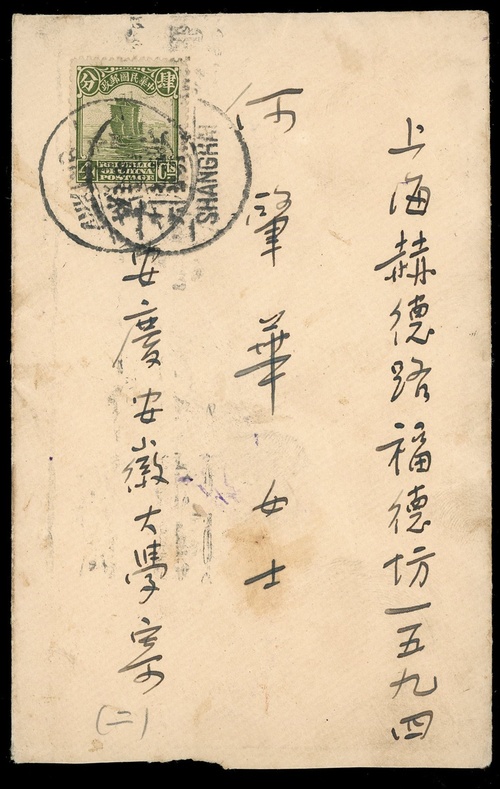 上海赫德路福德坊一五九四
何肇華女士
安慶安徽大學寄
(二)
中華民國郵政
肆分
REPUBLIC
OF CHINA
POSTAGE
4 Cts
SHANGHAI